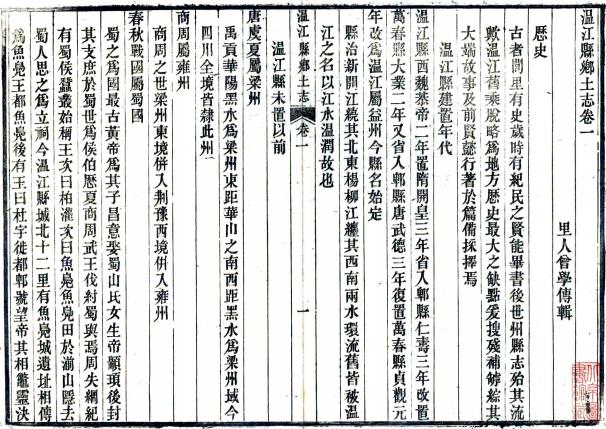 溫江縣鄉土志卷一
里人曾學傳輯
歷史
古者閭里有史歲時有紀民之賢能畢書後世州縣志殆其流
歟溫江舊乘脫略爲地方歷史最大之缺點爰搜殘補罅綜其
大端故事及前賢懿行著於篇備採擇焉
溫江縣建置年代
溫江縣西魏恭帝二年置隋開皇三年省入郫縣仁壽三年改置
萬春縣大業二年又省入郫縣唐武德三年復置萬春縣貞觀元
年改爲溫江屬益州今縣名始定
縣治新開江繞其北東楊柳江纏其西南兩水環流舊皆被溫
江之名以江水溫潤故也
溫江縣鄉土志 卷一 一
溫江縣未置以前
唐虞夏屬梁州
禹貢華陽黑水爲梁州東距華山之南西距黑水爲梁州域今
四川全境皆隷此州
商周屬雍州
商周之世梁州東境併入荆豫西境併入雍州
春秋戰國屬蜀國
蜀之爲國最古黃帝爲其子昌意娶蜀山氏女生帝顓頊後封
其支庶於蜀世爲侯伯歷夏商周武王伐紂蜀與焉周失綱紀
有蜀侯蠶叢始稱王次曰柏灌次曰魚鳧魚鳧田於湔山隱去
蜀人思之爲立祠今溫江縣城北十二里有魚鳧城遺址相傳
爲魚鳧王都魚鳧後有王曰杜宇徙都郫號望帝其相鼈靈決